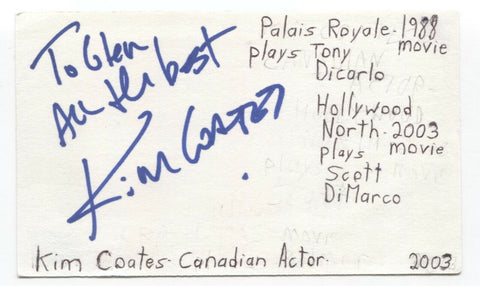 To Glen
All the best
Kim Coates
Palais Royale. 1988
plays Tony movie
Dicarlo
Hollywood
North. 2003
plays movie
Scott
DiMarco
Kim Coates. Canadian Actor. 2003